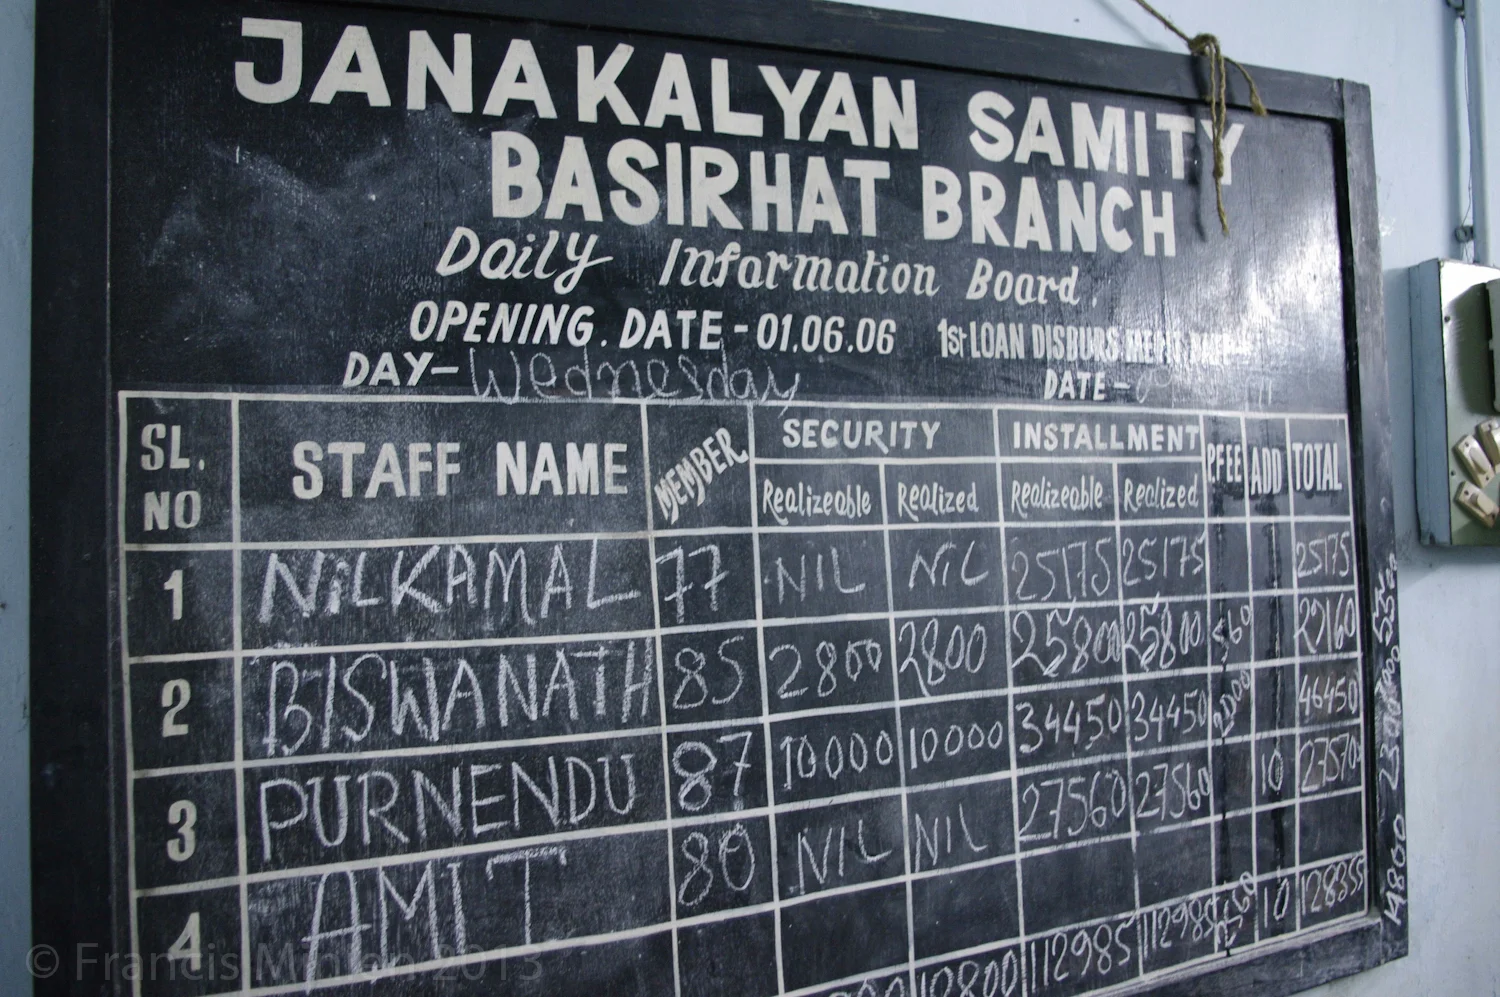 JANAKALYAN SAMITY
BASIRHAT BRANCH
Daily Information Board.
OPENING. DATE - 01.06.06 1st LOAN DISBURSMENT
DAY - Wednesday DATE -
SL. NO STAFF NAME MEMBER SECURITY INSTALLMENT PFEE ADD TOTAL
Realizeable Realized Realizeable Realized
1 NILKAMAL 77 NIL NIL 25175 25175 25175
2 BISWANATH 85 2800 2800 25800 25800 560 29160
3 PURNENDU 87 10000 10000 34450 34450 2000 46450
4 AMIT 80 NIL NIL 27560 27560 10 27570
12800 112985 112985 2560 10 128355
14800
© Francis Minien 2013